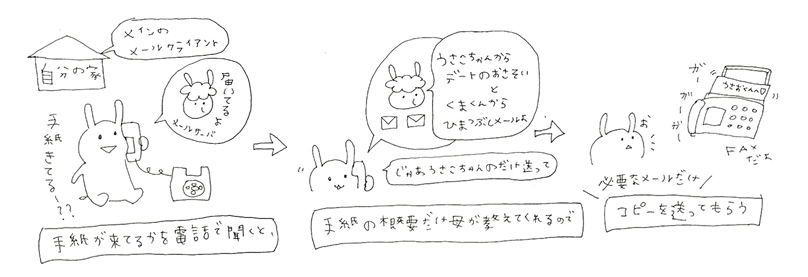 メインの
メールクライアント
自分の家
届いてるよ
メールサーバ
手紙きてるー??
手紙が来てるかを電話で聞くと、
うさこちゃんから
デートのおさそい
と
くまくんから
ひまつぶしメールよ
じゃあうさこちゃんのだけ送って
手紙の概要だけ母が教えてくれるので
ガー
ガー
ガー
うさおくんへ♡
FAX
だよ
お
必要なメールだけ
コピーを送ってもらう